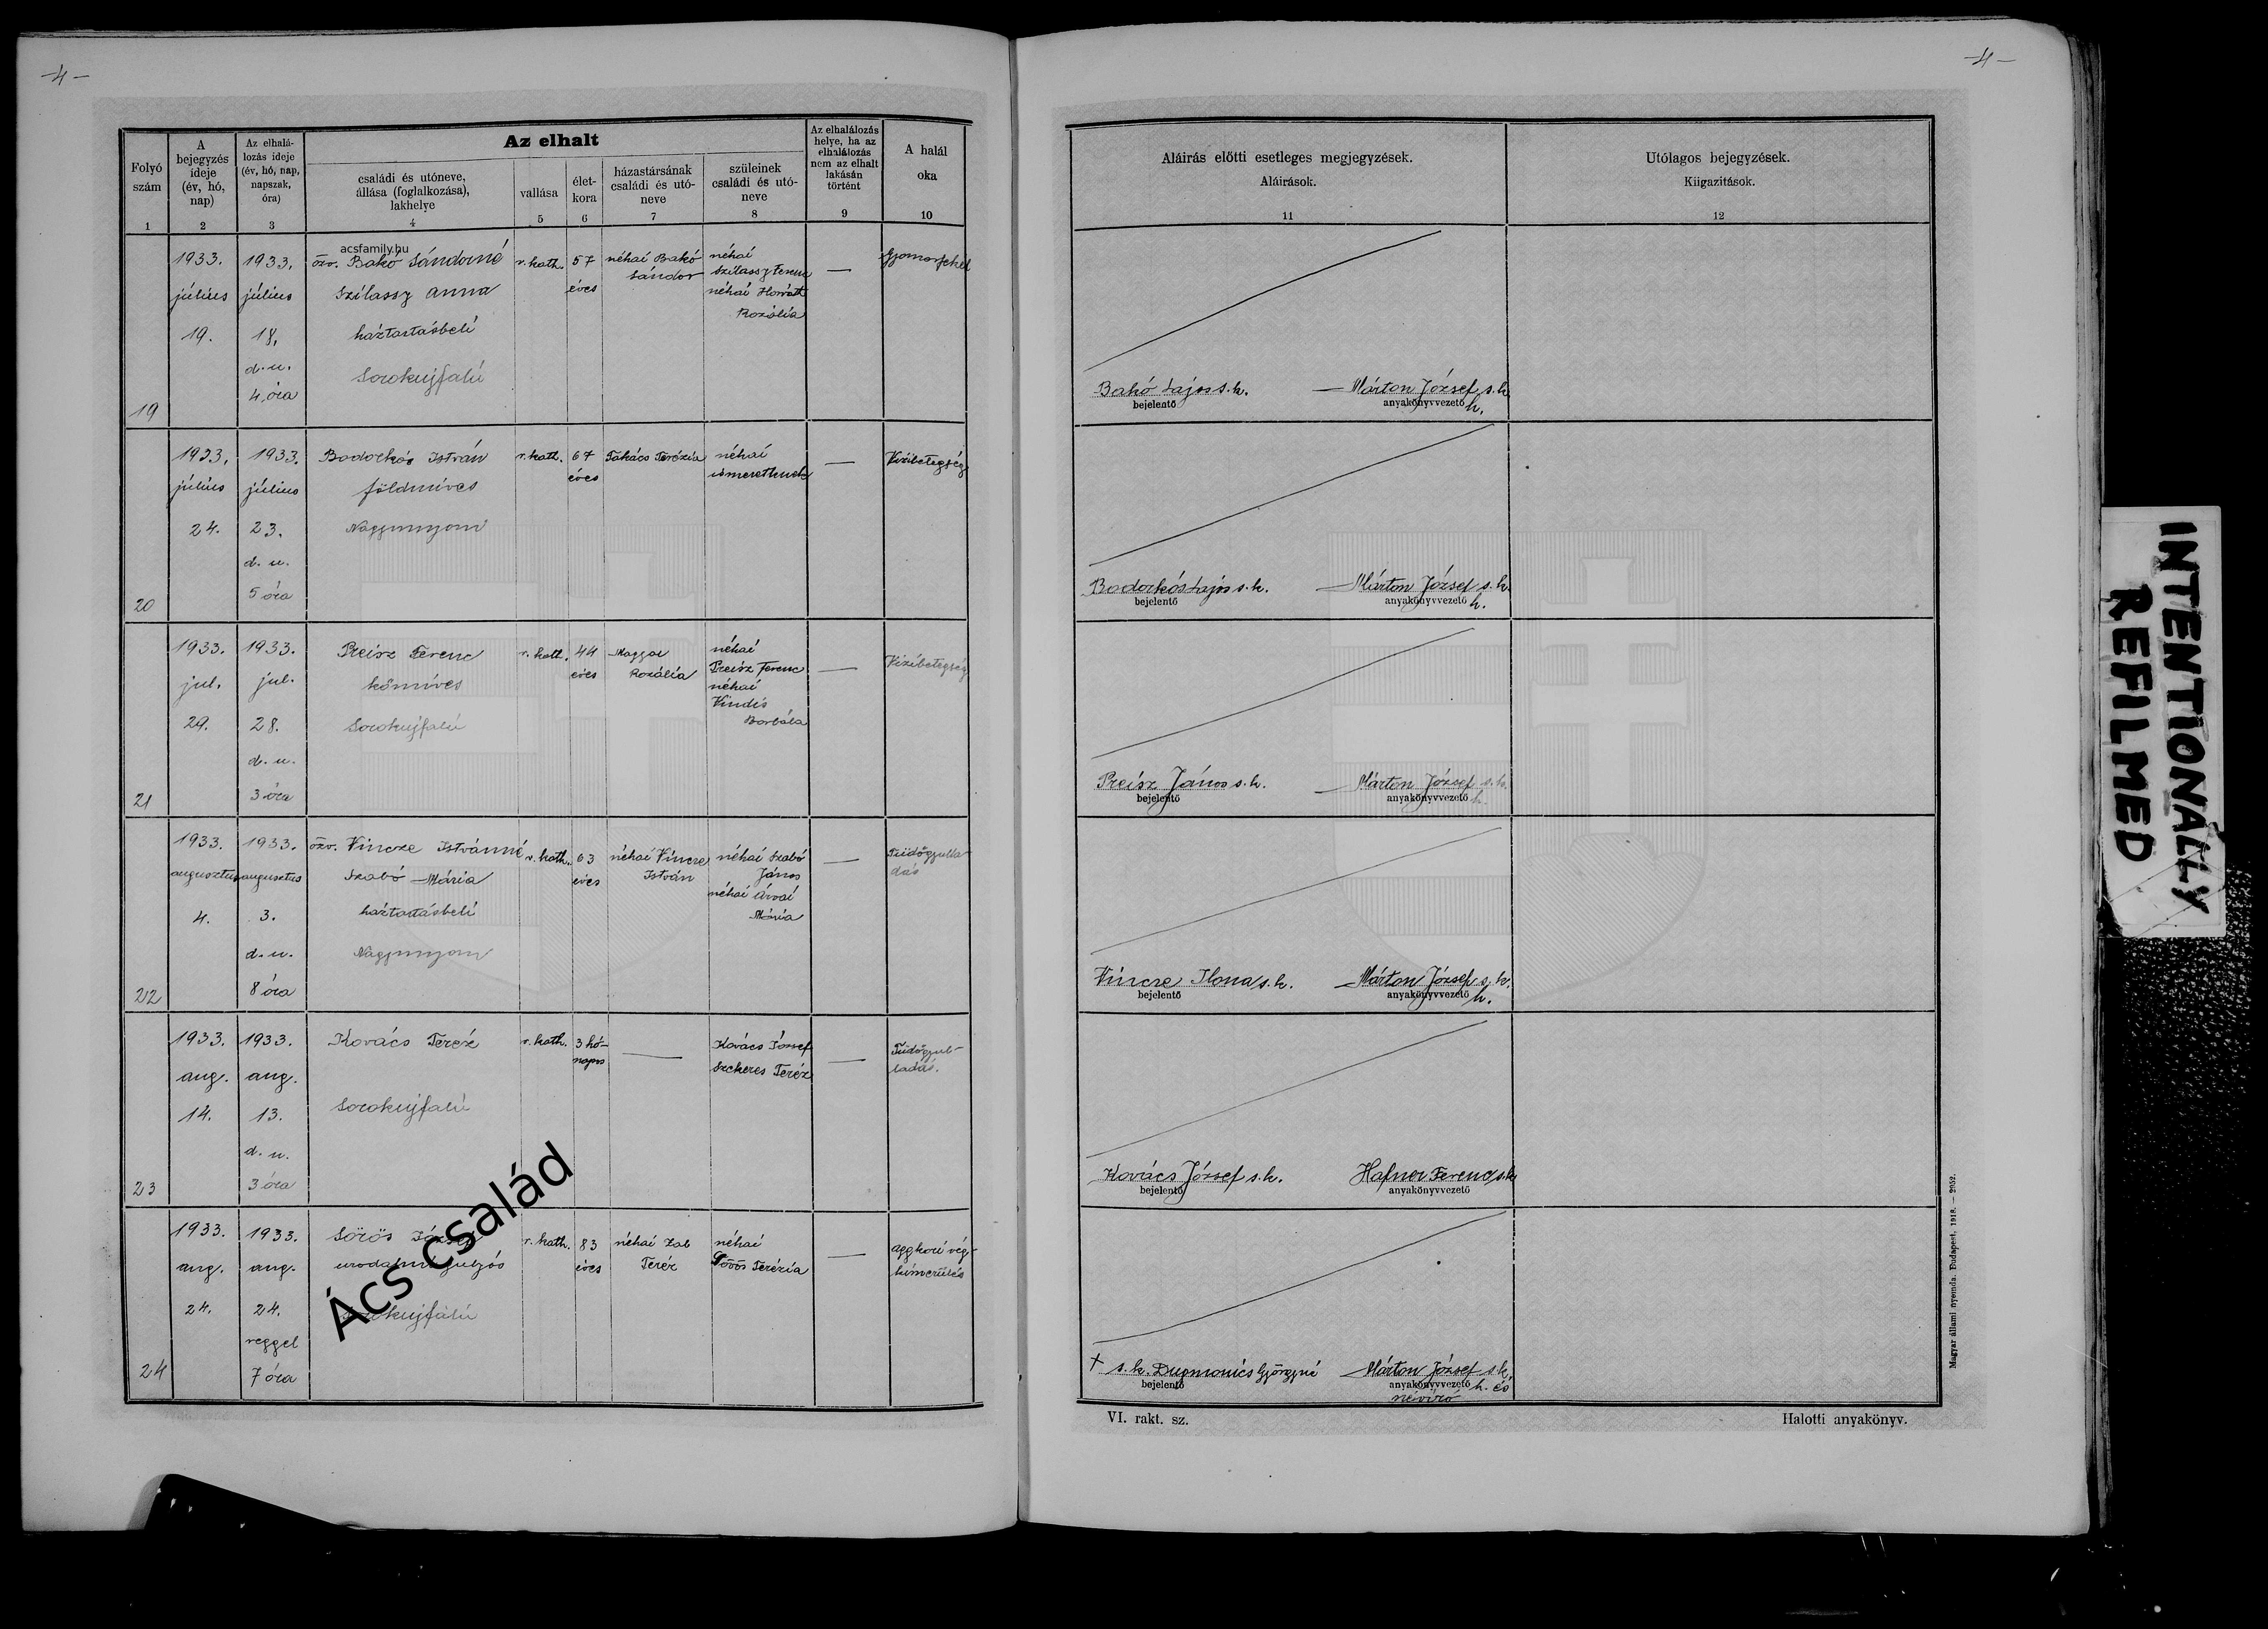 -4-
-4-
Folyó szám
A bejegyzés ideje (év, hó, nap)
Az elhalálozás ideje (év, hó, nap, napszak, óra)
Az elhalt
családi és utóneve, állása (foglalkozása), lakhelye
vallása
életkora
házastársának családi és utóneve
szüleinek családi és utóneve
Az elhalálozás helye, ha az elhalálozás nem az elhalt lakásán történt
A halál oka
1 2 3 4 5 6 7 8 9 10
Aláirás előtti esetleges megjegyzések.
Aláirások.
11
Utólagos bejegyzések.
Kiigazitások.
12
acsfamily.hu
19
1933. július 19.
1933. július 18. d.u. 4 óra
özv. Bakó Sándorné
Szilassy Anna
háztartásbeli
Sorokujfalu
r. kath.
57 éves
néhai Bakó Sándor
néhai Szilassy Ferenc
néhai Horváth Rozália
—
Bakó Lajos s.k.
bejelentő
Márton József s.k.
anyakönyvvezető h.
20
1933. július 24.
1933. július 23. d.u. 5 óra
Bodorkós István
földmíves
Nagyunyom
r. kath.
67 éves
Takács Terézia
néhai
—
Vízibetegség
Bodorkós Lajos s.k.
bejelentő
Márton József s.k.
anyakönyvvezető h.
21
1933. jul. 29.
1933. jul. 28. d.u. 3 óra
Preisz Ferenc
kőmíves
Sorokujfalu
r. kath.
44 éves
Magyar Rozália
néhai Preisz Ferenc
néhai Vindis Borbála
—
Vízibetegség
Preisz János s.k.
bejelentő
Márton József s.k.
anyakönyvvezető h.
22
1933. augusztus 4.
1933. augusztus 3. d.u. 8 óra
özv. Vincze Istvánné
Szabó Mária
háztartásbeli
Nagyunyom
r. kath.
63 éves
néhai Vincze István
néhai Szabó János
néhai Árvai Mária
—
Tüdőgyulladás
Vincze Ilona s.k.
bejelentő
Márton József s.k.
anyakönyvvezető h.
23
1933. aug. 14.
1933. aug. 13. d.u. 3 óra
Kovács Teréz
Sorokujfalu
r. kath.
3 hónapos
—
Kovács József
Szekeres Teréz
—
Tüdőgyulladás.
Kovács József s.k.
bejelentő
Hafner Ferenc s.k.
anyakönyvvezető
24
1933. aug. 24.
1933. aug. 24. reggel 7 óra
Sörös József
uradalmi gulyás
Sorokujfalu
r. kath.
83 éves
néhai Teréz
néhai Terézia
—
aggkori végkimerülés
+ s.k. Györgyné
bejelentő
Márton József s.k.
anyakönyvvezető h. és
névíró
Ács család
VI. rakt. sz.
Halotti anyakönyv.
Magyar állami nyomda. Budapest, 1918. — 2952.
INTENTIONALLY
REFILMED